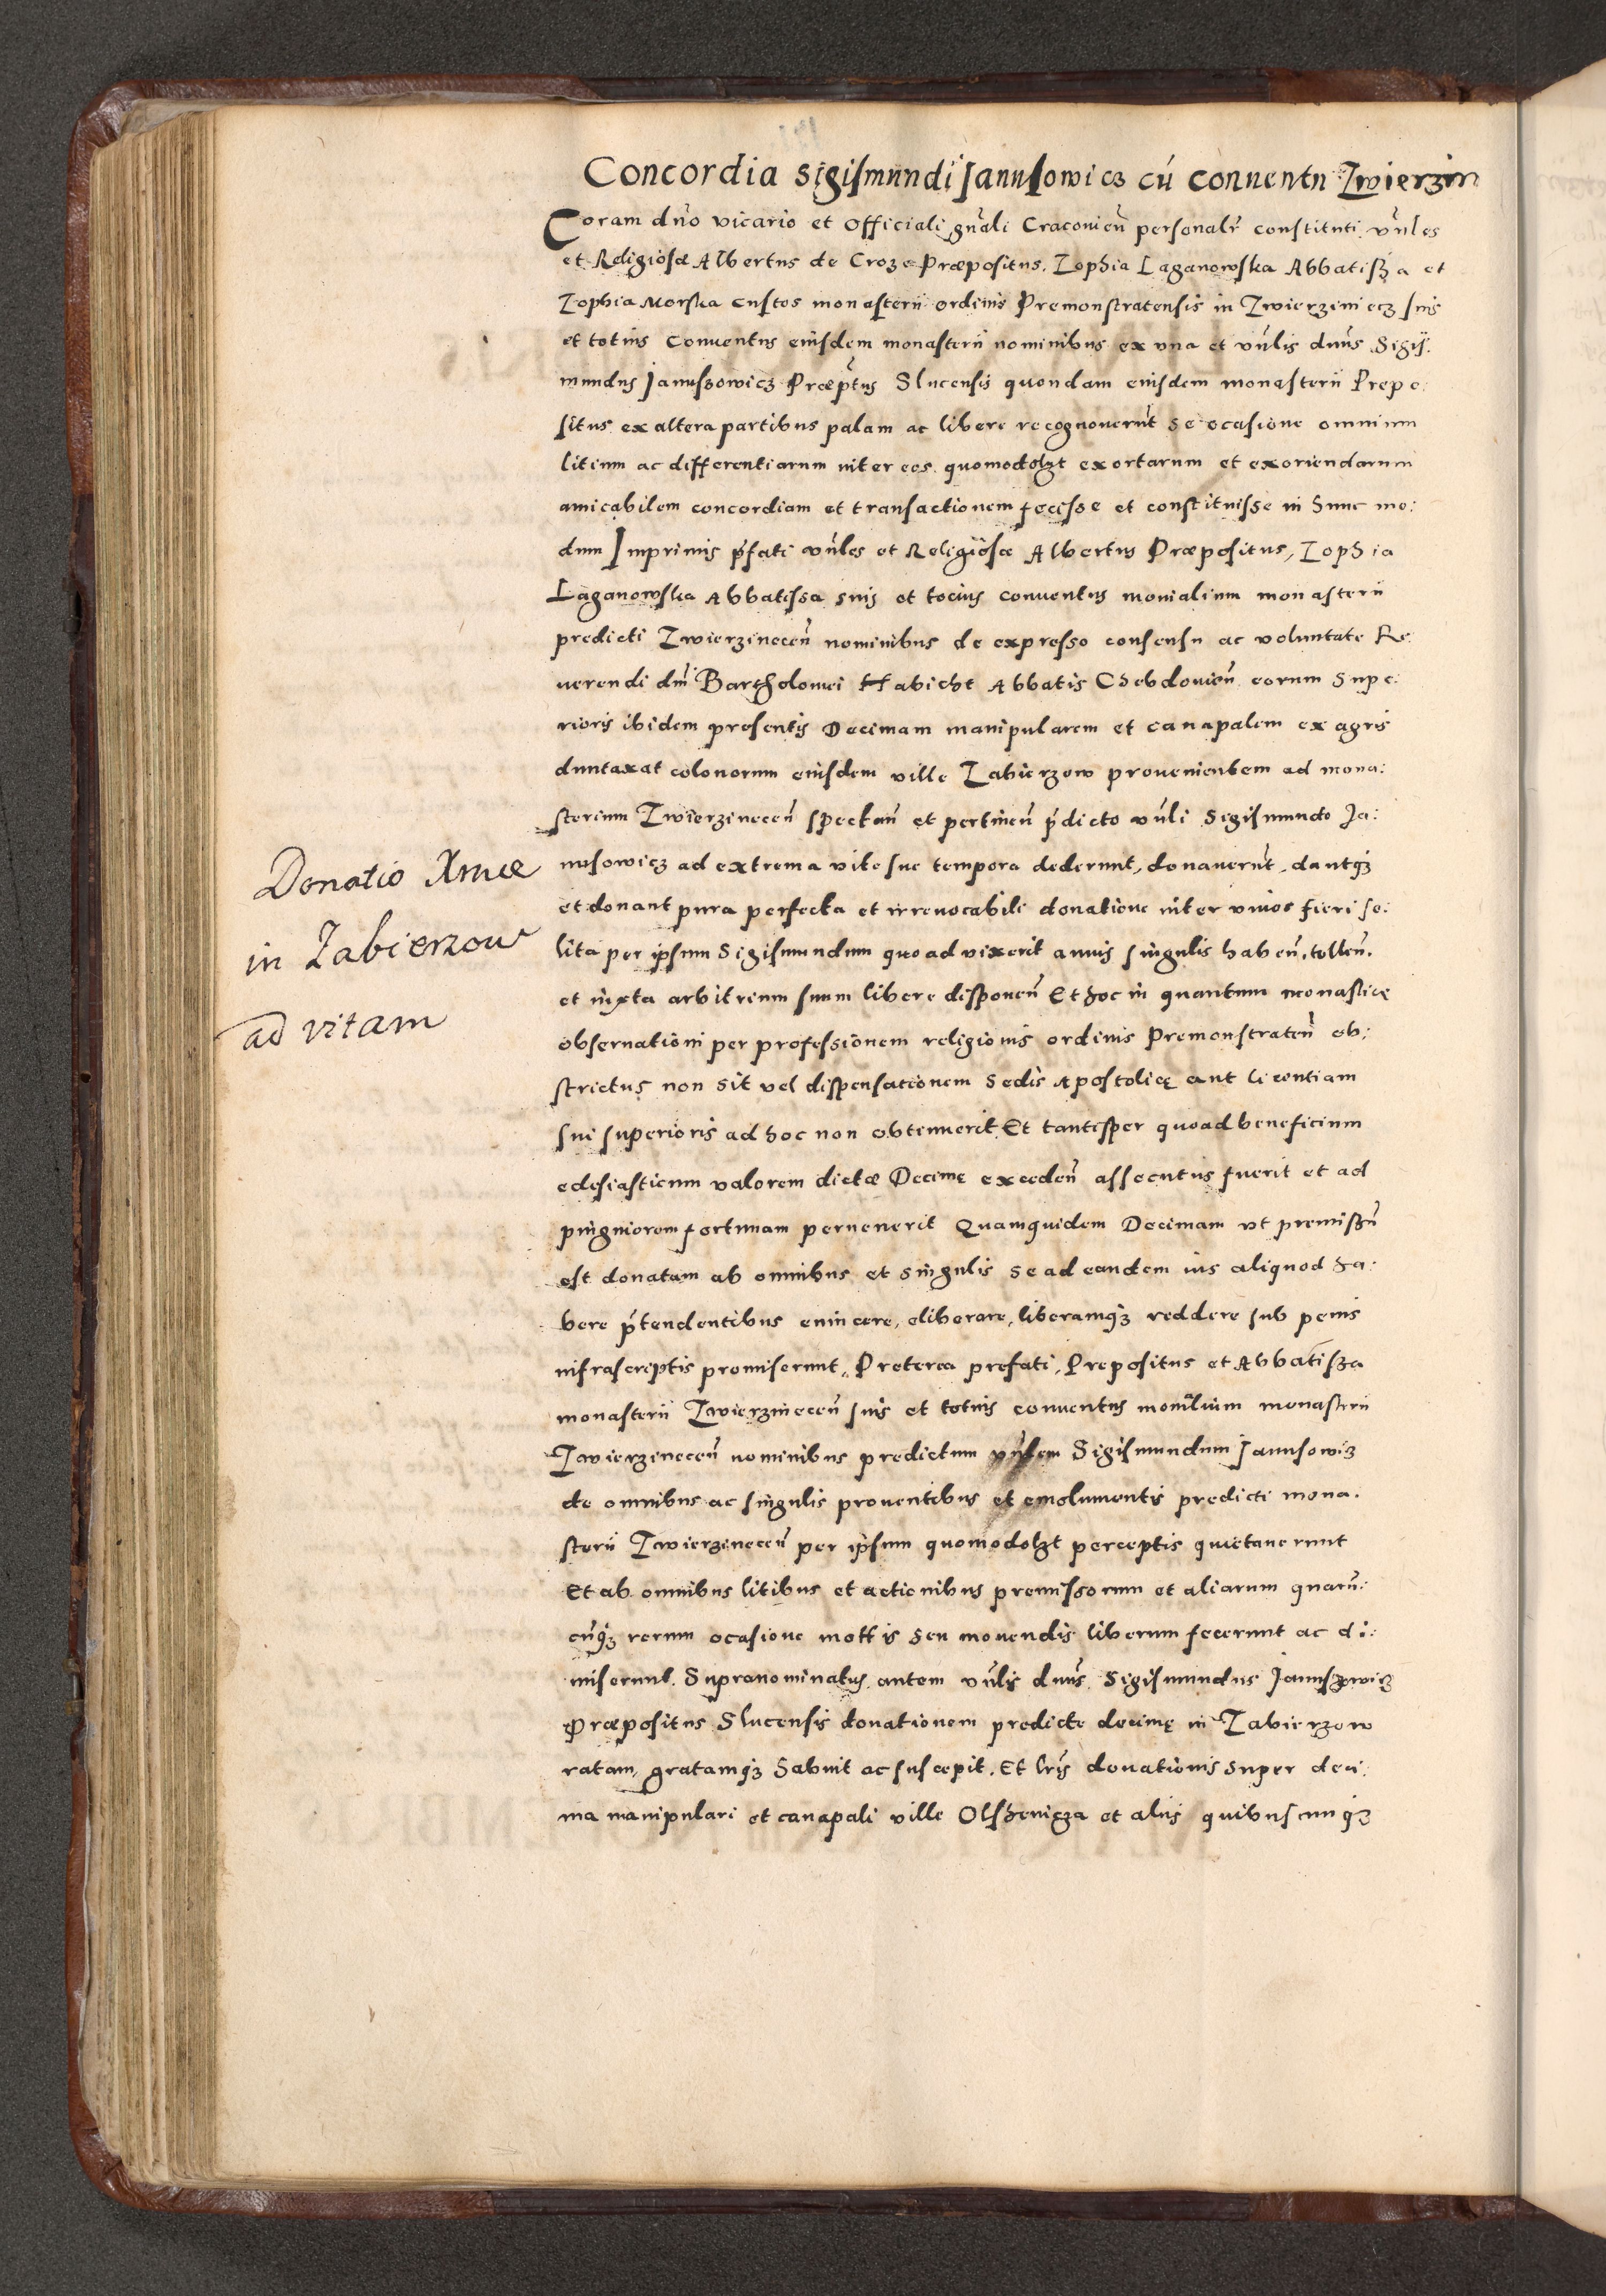 Concordia Sigismundi Janusowicz cū conventu Zwierzin
Coram dño vicario et Officiali gñali Cracovieñ personalr̃ constituti vñles
et Religiosæ Albertus de Croze Præpositus, Zophia Laganowska Abbatissa et
Zophia Morska Custos monasterii ordinis Premonstratensis in Zwierziniecz suis
et totius Conventus eiusdem monasterii nominibus ex una et vñlis dñus Sigis:
mundus Janussowicz Præptus Slucensis quondam eiusdem monasterii Prepo:
situs ex altera partibus palam ac libere recognoverūt se ocasione omnium
litium ac differentiarum inter eos quomodolzt exortarum et exoriendarum
amicabilem concordiam et transactionem fecisse et constituisse in hunc mo:
dum Imprimis p̃fati vñles et Religiosæ Albertus Præpositus, Zophia
Laganowska Abbatissa suis et tocius conventus monialium monasterii
predicti Zwierzineceñ nominibus de expresso consensu ac voluntate Re:
verendi dñi Bartholomei Habicht Abbatis Chebdovieñ eorum Supe:
rioris ibidem presentis Decimam manipularem et canapalem ex agris
duntaxat colonorum eiusdem ville Zabierzow provenientem ad mona:
sterium Zwierzineceñ spectañ et pertineñ p̃dicto vñli Sigismundo Ja:
nusowicz ad extrema vite sue tempora dederunt, donaverūt, dantq3
et donant pura perfecta et irrevocabili donatione inter vivos fieri so:
lita per ipsum Sigismundum quoad vixerit annis singulis habeñ, tolleñ,
et iuxta arbitrium suum libere disponeñ Et hoc in quantum monasticę
observationi per professionem religionis ordinis Premonstrateñ ob:
strictus non sit vel dispensationem Sedis Apostolicę aut licentiam
sui superioris ad hoc non obtinuerit Et tantisper quoad beneficium
eclesiasticum valorem dictæ Decimę excedeñ assecutus fuerit et ad
pinguiorem fortunam pervenerit Quamquidem Decimam ut premissū
est donatam ab omnibus et singulis se ad eandem ius aliquod ha:
bere p̃tendentibus evincere, eliberare, liberamq3 reddere sub penis
infrascriptis promiserunt, Preterea prefati, Prepositus et Abbatissa
monasterii Zwierzineceñ suis et totius conventus monialium monasterii
Zwierzineceñ nominibus predictum vñlem Sigismundum Janusowicz
de omnibus ac singulis proventibus et emolumentis predicti mona:
sterii Zwierzineceñ per ipsum quomodolzt perceptis quietaverunt
Et ab omnibus litibus et actionibus premissorum et aliarum quarū:
cūq3 rerum ocasione mottis seu movendis liberum fecerunt ac di:
miserunt. Supranominatus autem vñlis dñus Sigismundus Janusszowicz
Præpositus Slucensis donationem predicte decimę in Zabierzow
ratam, gratamq3 habuit ac suscepit, Et lr̃is donationis super deci:
ma manipulari et canapali ville Olschenicza et aliis quibuscunq3
Donatio Xmæ
in Zabierzow
ad vitam